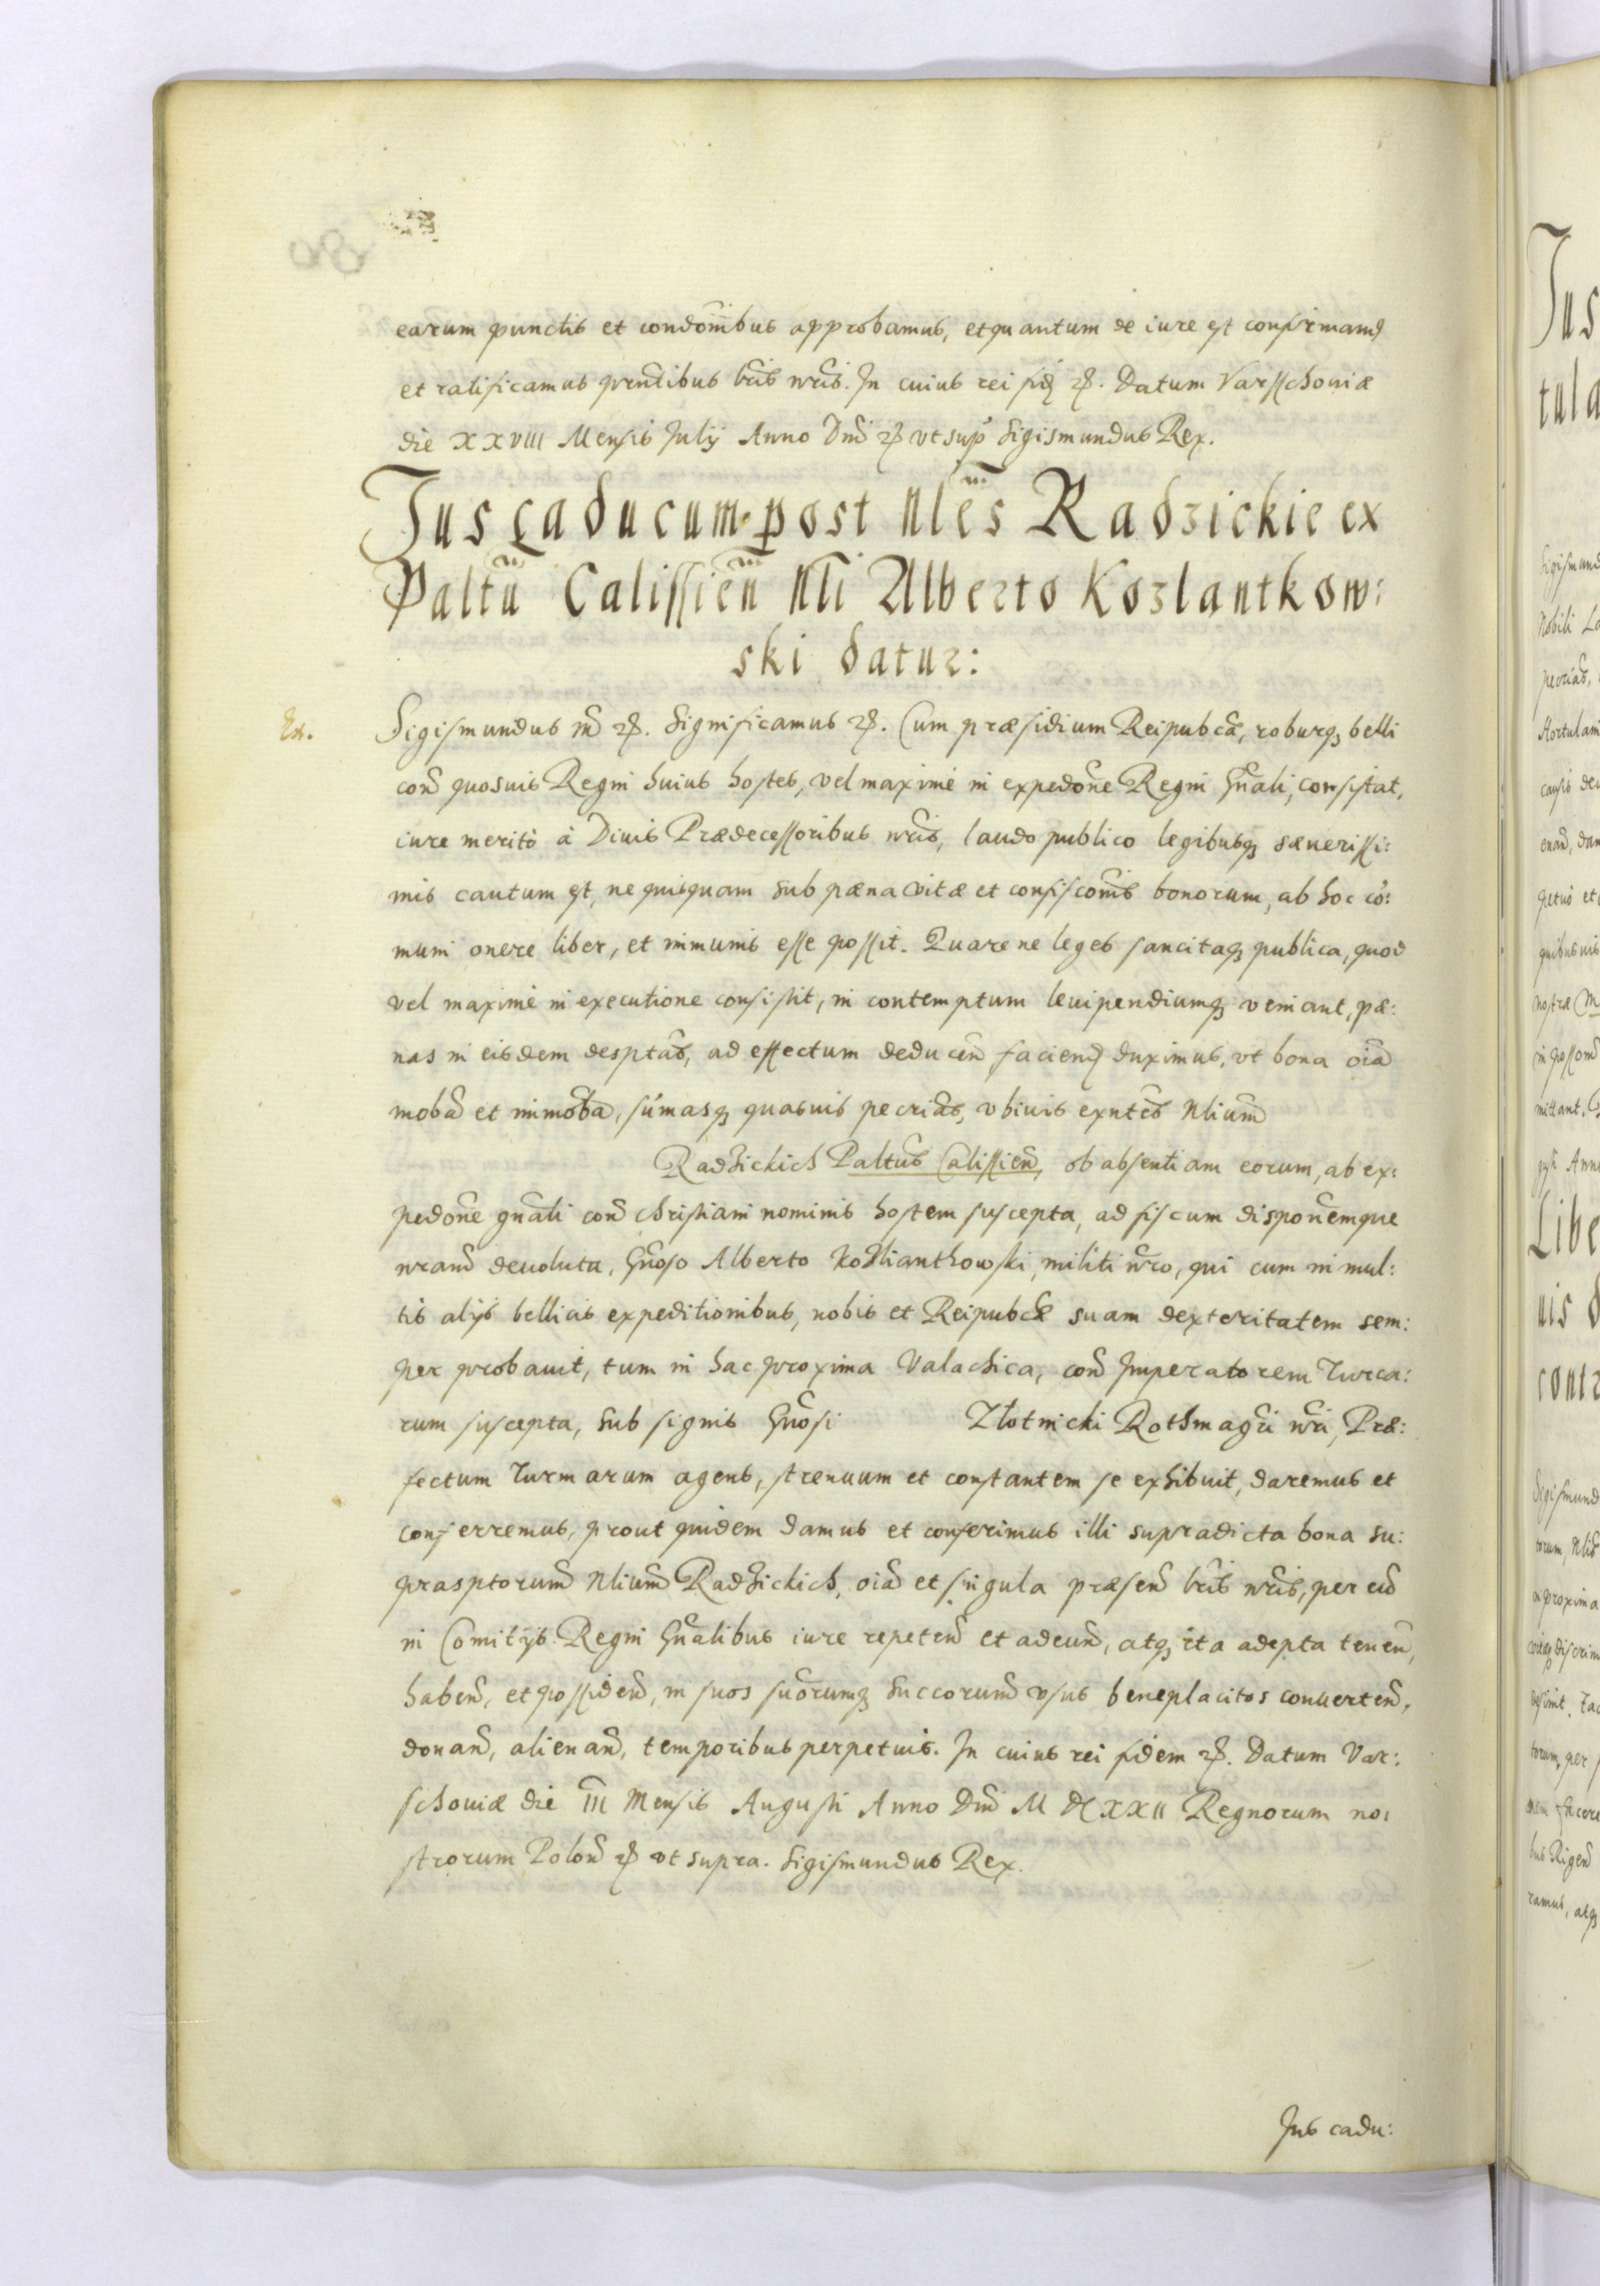 earum punctis et condõnibus approbamus, et quantum de iure est confirmamꝫ
et ratificamus prntibus lris nris. In cuius rei fidꝫ ꝛc. Datum Varsschouiæ
die XXVIII Mensis July Anno Dni ꝛc vt supr Sigismundus Rex.
Jus caducum post Nles Radzickie ex
Paltu Calissien Nli Alberto Kozlantkow:
ski datur:
Ex. Sigismundus ꝛc. Significamus ꝛc. Cum præsidium Reipubcæ, roburqꝫ belli
con quosuis Regni huius hostes, vel maximè in expedone Regni Gnali, consistat,
iure meritò à Diuis Prædecessoribus nris, laudo publico legibusqꝫ sæuerissi:
mis cautum est, ne quisquam sub pæna vitæ et confisconis bonorum, ab hoc cõ:
muni onere liber, et immunis esse possit. Quare ne leges sancitaqꝫ publica, quod
vel maximè in executione consistit, in contemptum leuipendiumqꝫ veniant, pæ:
nas in eisdem desptas, ad effectum deducen faciendꝫ duximus, vt bona oia
moba et immoba, sũmasqꝫ quasuis pecrias, vbiuis exntes Nlium
Radzickich Paltus Calissien, ob absentiam eorum, ab ex:
pedone gnali con christiani nominis hostem suscepta, ad fiscum disponemque
nram deuoluta, Gnoso Alberto Kozlianthowski, militi nro, qui cum in mul:
tis alijs bellicis expeditionibus, nobis et Reipubcæ suam dexteritatem sem:
per probauit, tum in hac proxima Valachica, con Imperatorem Turca:
rum suscepta, sub signis Gnosi Złotnicki Rothmagri nri, Præ:
fectum Turmarum agens, strenuum et constantem se exhibuit, daremus et
conferremus, prout quidem damus et conferimus illi supradicta bona su:
prasptorum Nlium Radzickich, oia et singula præsen lris nris, per eu
in Comitijs Regni Gnalibus iure repeten et adeun, atqꝫ ita adepta tenen,
haben, et possiden, in suos suorumqꝫ Succorum vsus beneplacitos conuerten,
donan, alienan, temporibus perpetuis. In cuius rei fidem ꝛc. Datum Var:
schouiæ die III Mensis Augusti Anno Dni M DCXXII Regnorum no:
strorum Polon ꝛc vt supra. Sigismundus Rex.
Jus cadu: